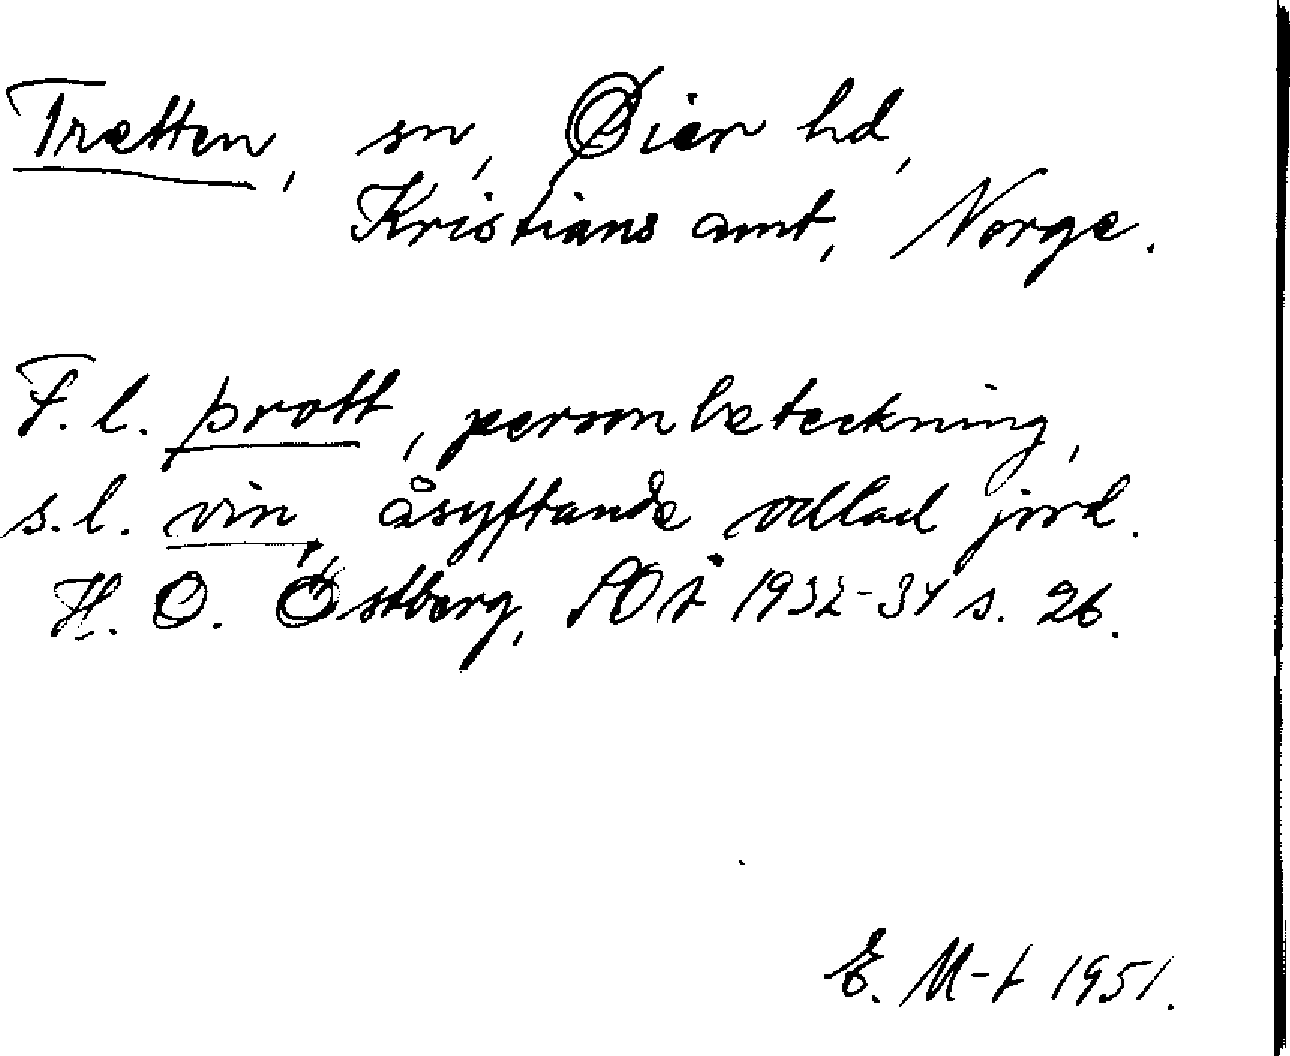 Tretten, sn, Öier hd,
Kristians amt, Norge.
F. l. þrott, personbeteckning,
s. l. vin, åsyftande odlad jord.
H. O. Östberg, NOÅ 1932-34 s. 26.
E. M-t 1951.